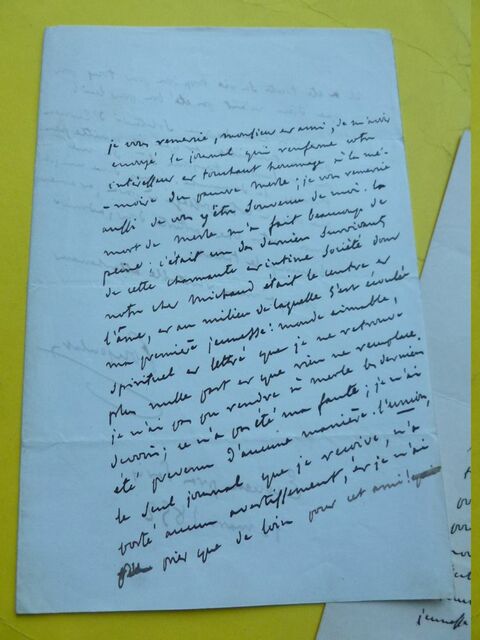 je vous remercie, monsieur et ami, de m'avoir
envoyé le journal qui renferme votre
intéressant et touchant hommage à la mé-
-moire du pauvre merle; je vous remercie
aussi de vous y être souvenu de moi. la
mort de merle m'a fait beaucoup de
peine: c'était un des derniers survivants
de cette charmante et intime société dont
notre cher Michaud était le centre et
l'âme, et au milieu de laquelle s'est écoulée
ma première jeunesse: monde aimable,
spirituel et lettré que je ne retrouve
plus nulle part et que rien ne remplace.
je n'ai pas pu rendre à merle les derniers
devoirs; ce n'a pas été ma faute; je n'ai
été prévenu d'aucune manière. l'union,
le seul journal que je reçoive, n'a
porté aucun avertissement, et je n'ai
prier que de loin pour cet ami!
jeunesse